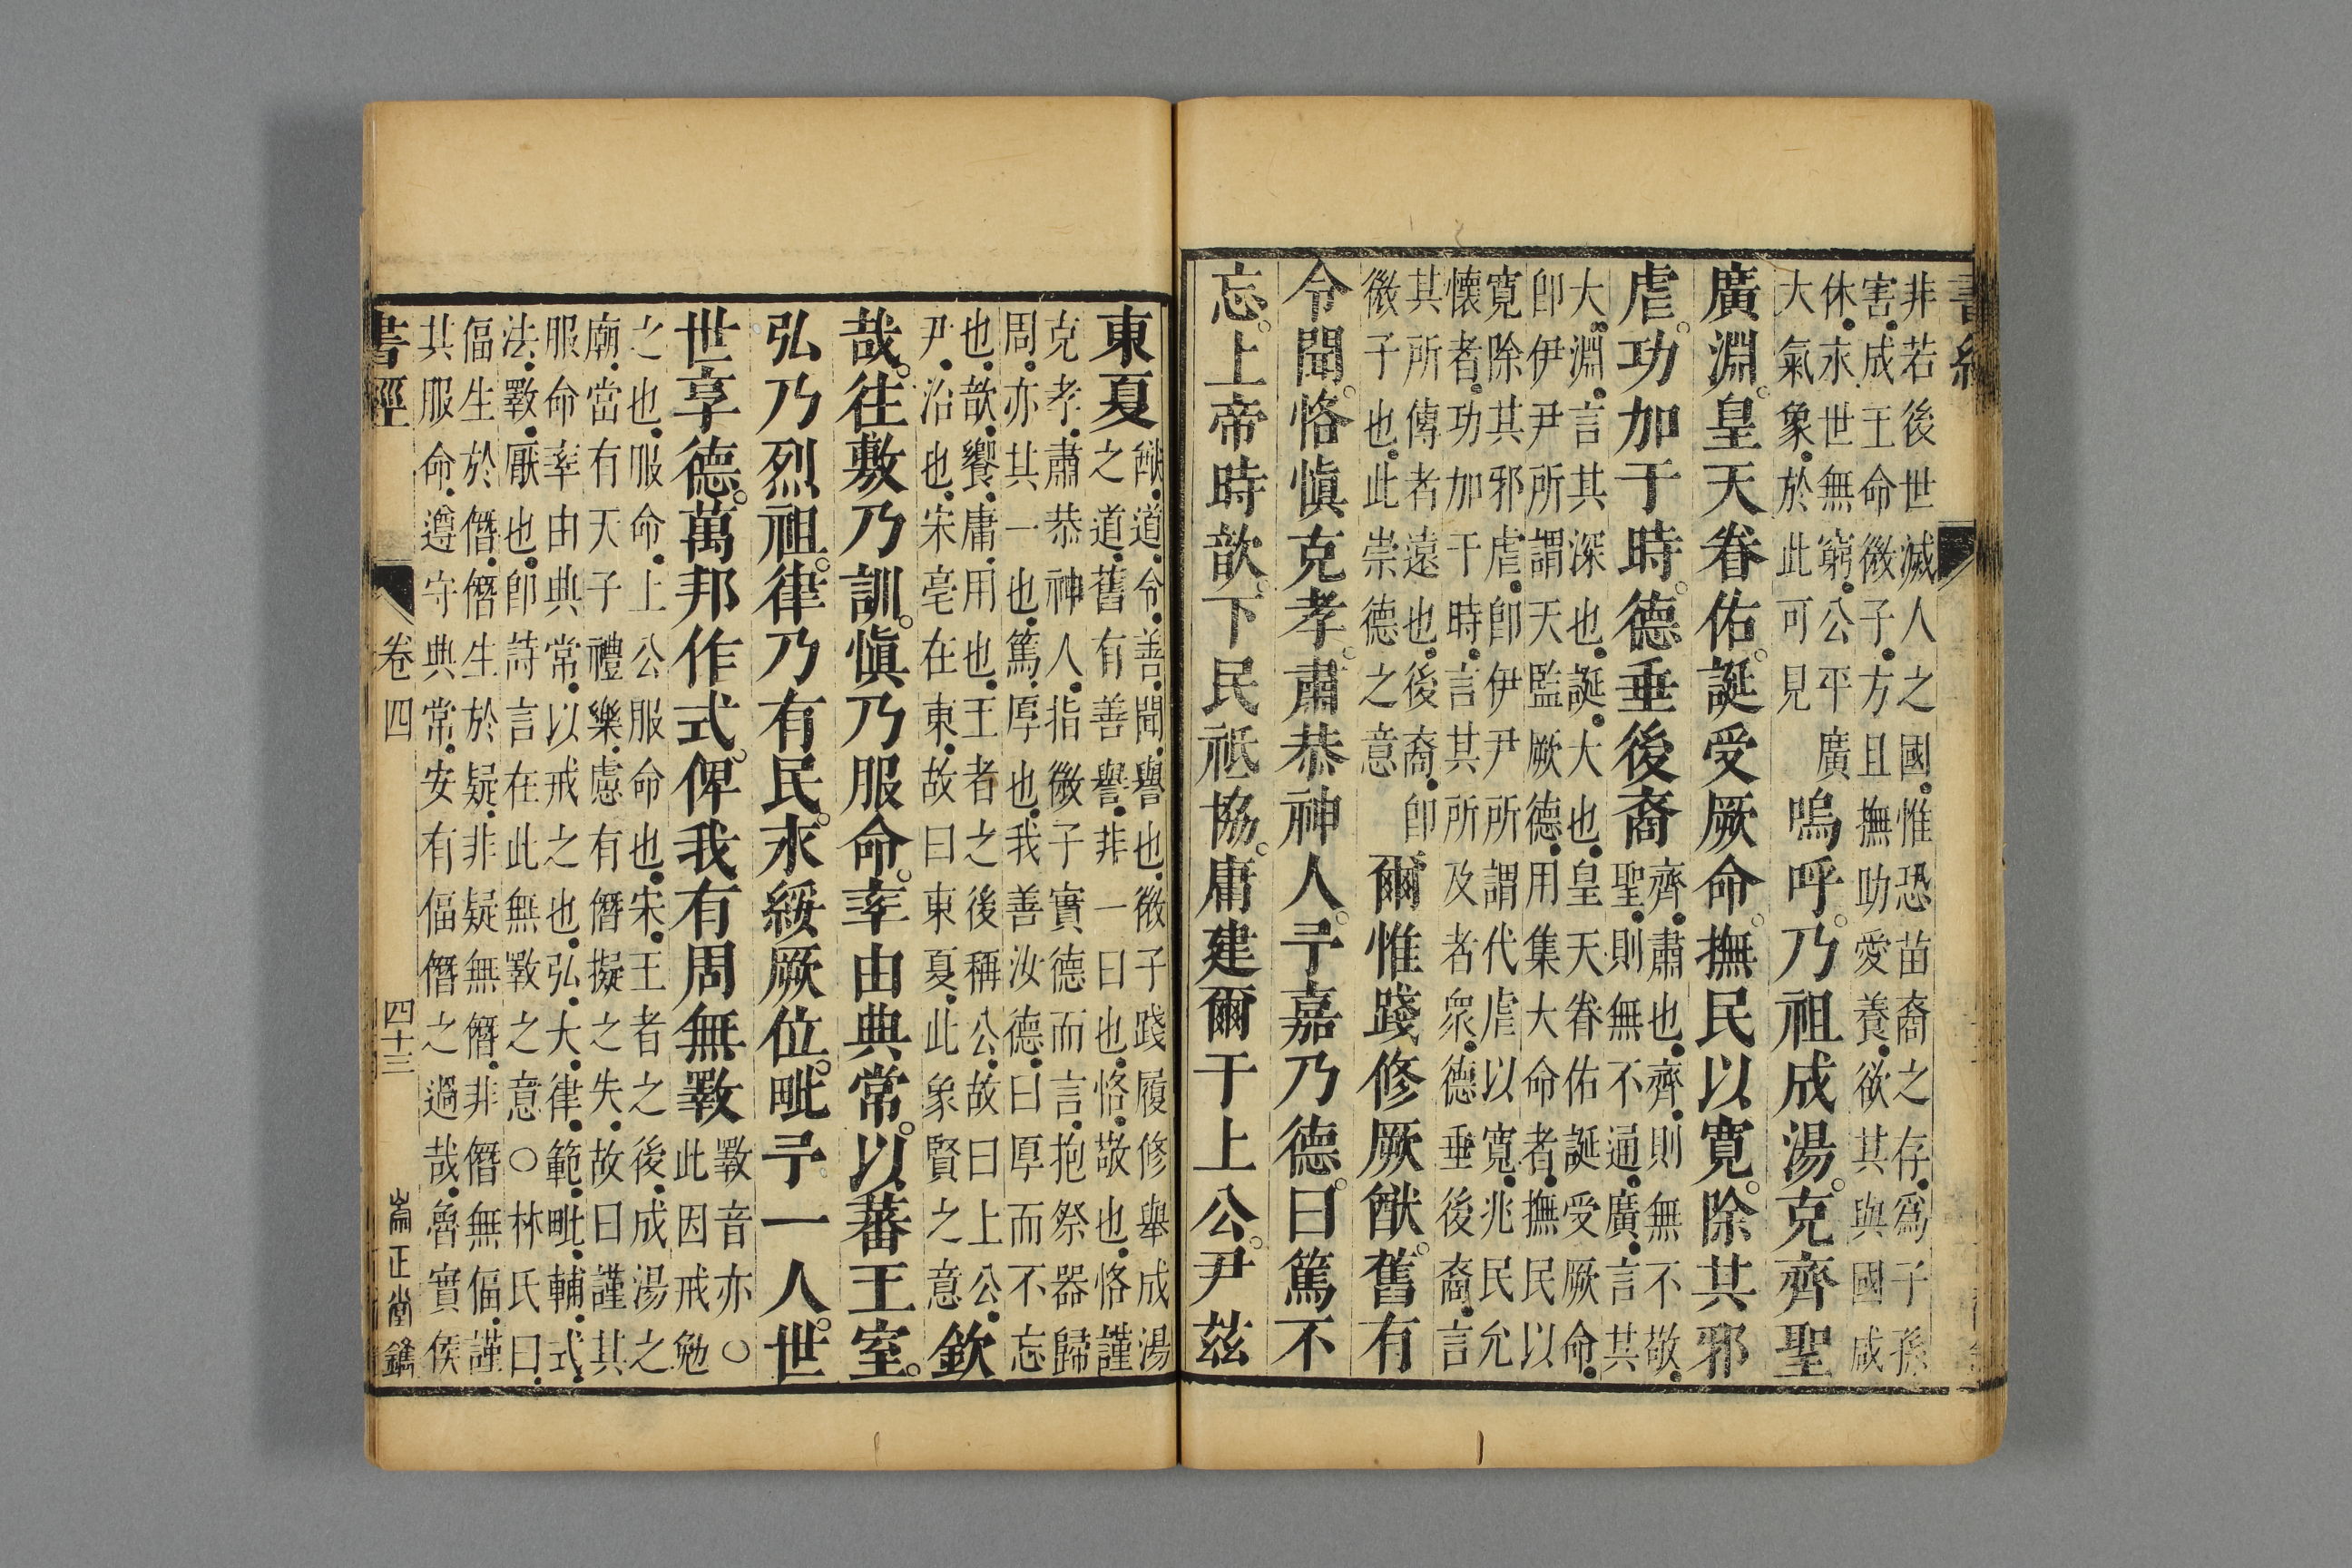 書經
非若後世滅人之國惟恐苗裔之存爲子孫
害成王命微子方且撫助愛養欲其與國咸
休永世無窮公平廣
大氣象於此可見
嗚呼乃祖成湯克齊聖
廣淵皇天眷佑誕受厥命撫民以寬除其邪
虐功加于時德垂後裔
齊肅也齊則無不敬
聖則無不通廣言其
大淵言其深也誕大也皇天眷佑誕受厥命
卽伊尹所謂天監厥德用集大命者撫民以
寬除其邪虐卽伊尹所謂代虐以寬兆民允
懷者功加于時言其所及者衆德垂後裔言
其所傳者遠也後裔卽
微子也此崇德之意
爾惟踐修厥猷舊有
令聞恪愼克孝肅恭神人予嘉乃德曰篤不
忘上帝時歆下民祗協庸建爾于上公尹茲
東夏
猷道令善聞譽也微子踐履修舉成湯
之道舊有善譽非一日也恪敬也恪謹
克孝肅恭神人指微子實德而言抱祭器歸
周亦其一也篤厚也我善汝德曰厚而不忘
也歆饗庸用也王者之後稱公故曰上公
尹治也宋亳在東故曰東夏此象賢之意
欽
哉往敷乃訓愼乃服命率由典常以蕃王室
弘乃烈祖律乃有民永綏厥位毗予一人世
世享德萬邦作式俾我有周無斁
斁音亦○
此因戒勉
之也服命上公服命也宋王者之後成湯之
廟當有天子禮樂慮有僭擬之失故曰謹其
服命率由典常以戒之也弘大律範毗輔式
法斁厭也卽詩言在此無斁之意○林氏曰
偪生於僭僭生於疑非疑無僭非僭無偪謹
其服命遵守典常安有偪僭之過哉魯實侯
書經 卷四 四十三 正堂鐫